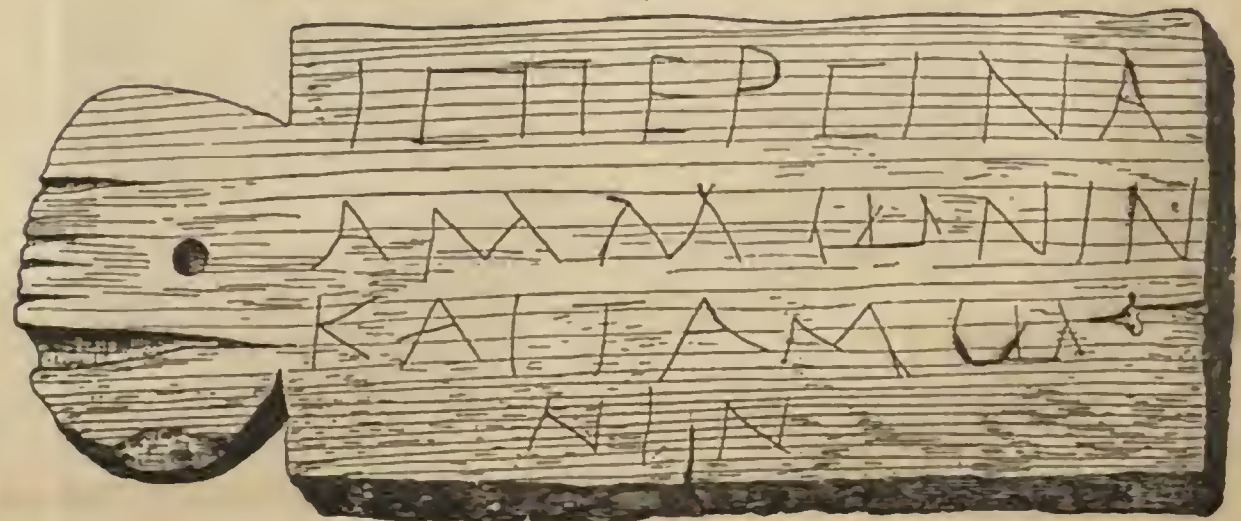 ΙϹΠΕΡϹΙΝΑ
ΑΜΜΩΝΙΝ
ΚΑΙΤΑΜΩ
ΝΙΝ